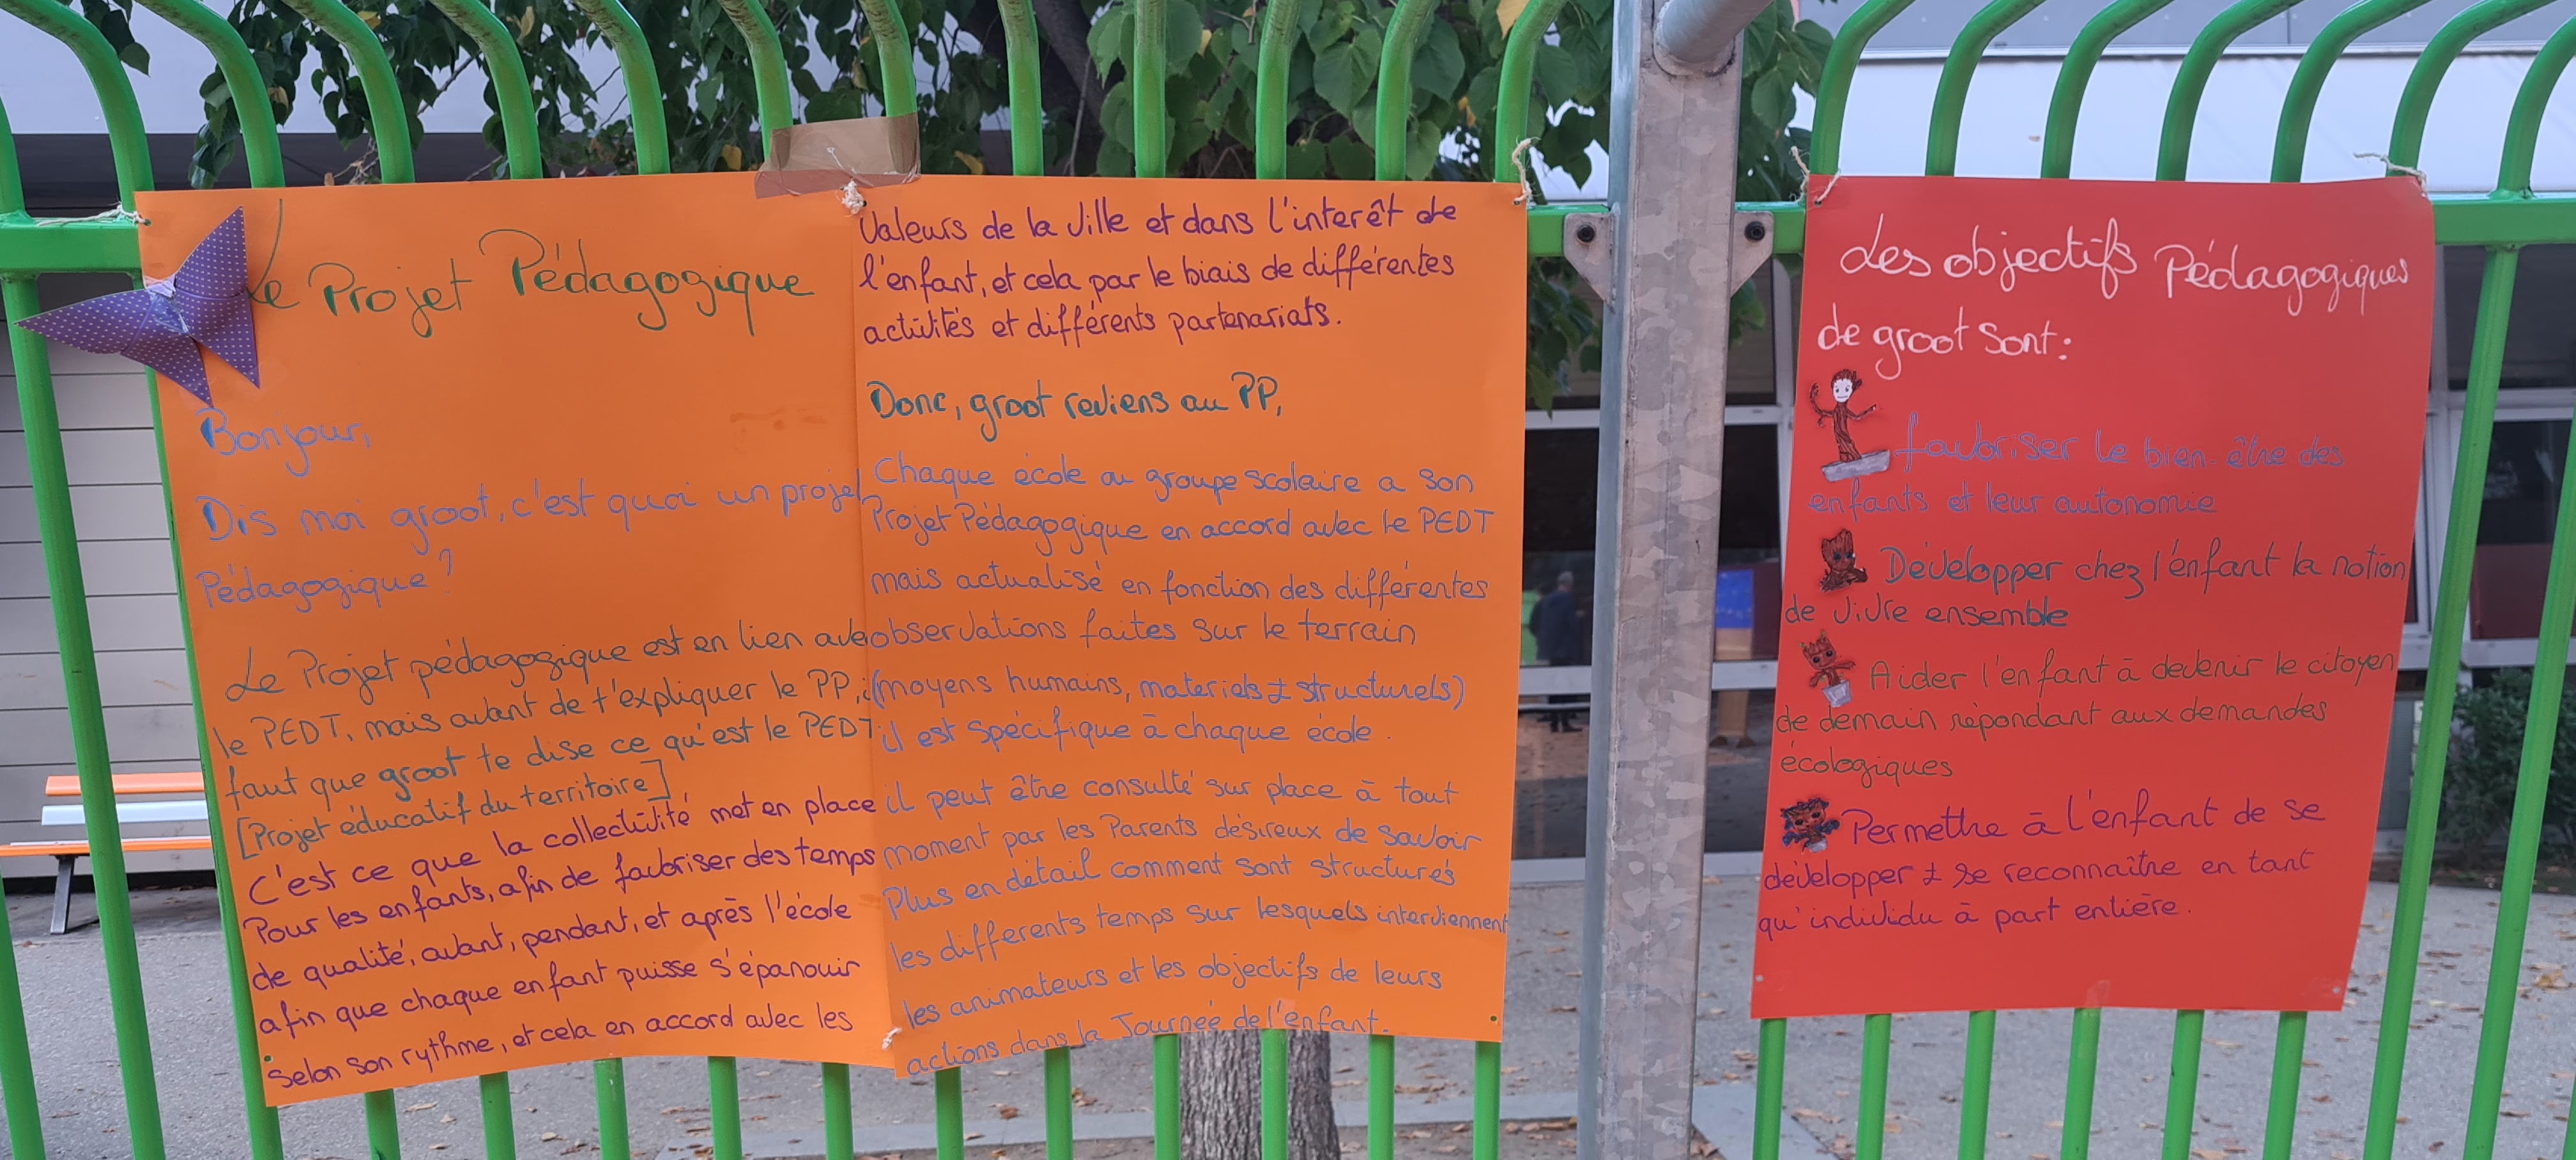 Le Projet Pédagogique
Bonjour,
Dis moi groot, c'est quoi un projet
Pédagogique?
Le Projet pédagogique est en lien avec
le PEDT, mais avant de t'expliquer le PP, i
faut que groot te dise ce qu'est le PEDT
[Projet éducatif du territoire]
C'est ce que la collectivité met en place
Pour les enfants, afin de favoriser des temps
de qualité, avant, pendant, et après l'école
afin que chaque enfant puisse s'épanouir
Selon son rythme, et cela en accord avec les
Valeurs de la ville et dans l'interêt de
l'enfant, et cela par le biais de différentes
activités et différents partenariats.
Donc, groot reviens au PP,
Chaque école ou groupe scolaire a son
Projet Pédagogique en accord avec le PEDT
mais actualisé en fonction des différentes
observations faites sur le terrain
(moyens humains, materiels & structurels)
il est spécifique à chaque école.
il peut être consulté sur place à tout
moment par les Parents désireux de savoir
Plus en détail comment sont structurés
les differents temps sur lesquels interviennent
les animateurs et les objectifs de leurs
actions dans la Journée de l'enfant.
Les objectifs Pédagogiques
de groot sont:
favoriser le bien-être des
enfants et leur autonomie
Développer chez l'enfant la notion
de vivre ensemble
Aider l'enfant à devenir le citoyen
de demain répondant aux demandes
écologiques
Permettre à l'enfant de se
développer & se reconnaître en tant
qu'individu à part entière.